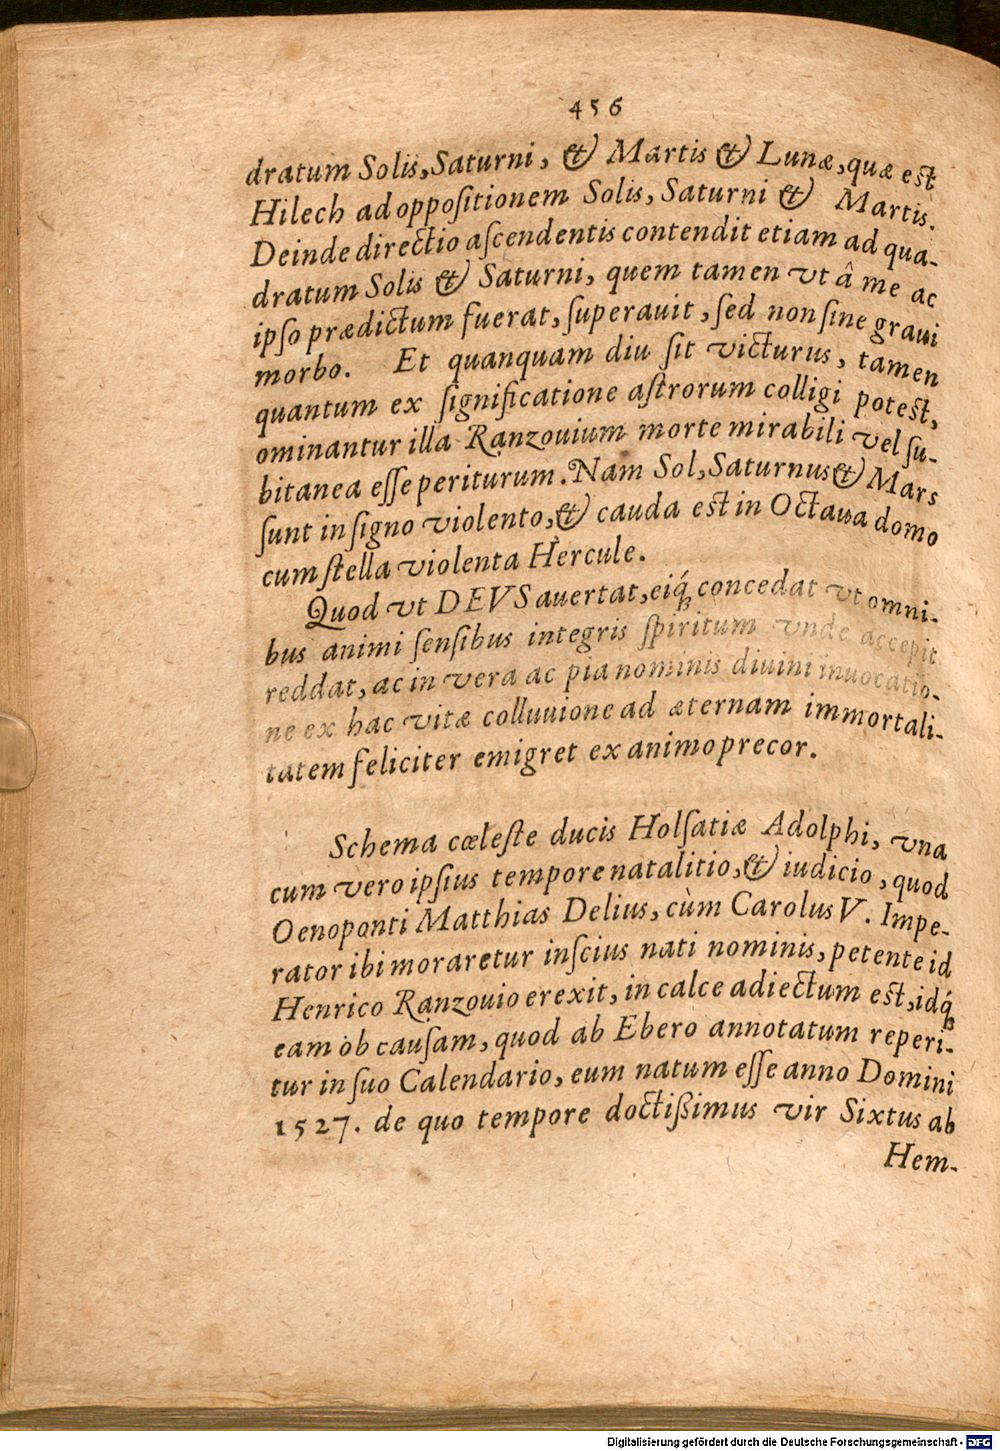 456
dratum Solis, Saturni, & Martis & Lunæ, quæ est
Hilech ad oppoſitionem Solis, Saturni & Martis.
Deinde directio aſcendentis contendit etiam ad qua-
dratum Solis & Saturni, quem tamen vt â me ac
ipſo prædictum fuerat, ſuperauit, ſed non ſine graui
morbo. Et quanquam diu ſit victurus, tamen
quantum ex ſignificatione aſtrorum colligi potest,
ominantur illa Ranzouium morte mirabili vel ſu-
bitanea eſſe periturum. Nam Sol, Saturnus & Mars
ſunt in ſigno violento, & cauda est in Octaua domo
cum ſtella violenta Hercule.
Quod vt DEVS auertat, eiq́; concedat vt omni-
bus animi ſenſibus integris ſpiritum vnde accepit
reddat, ac in vera ac pia nominis diuini inuocatio-
ne ex hac vitæ colluuione ad æternam immortali-
tatem feliciter emigret ex animo precor.
Schema cœleſte ducis Holſatiæ Adolphi, vna
cum vero ipſius tempore natalitio, & iudicio, quod
Oenoponti Matthias Delius, cùm Carolus V. Impe-
rator ibi moraretur inſcius nati nominis, petente id
Henrico Ranzouio erexit, in calce adiectum est, idq́;
eam ob cauſam, quod ab Ebero annotatum reperi-
tur in ſuo Calendario, eum natum eſſe anno Domini
1527. de quo tempore doctißimus vir Sixtus ab
Hem-
Digitalisierung gefördert durch die Deutsche Forschungsgemeinschaft - DFG